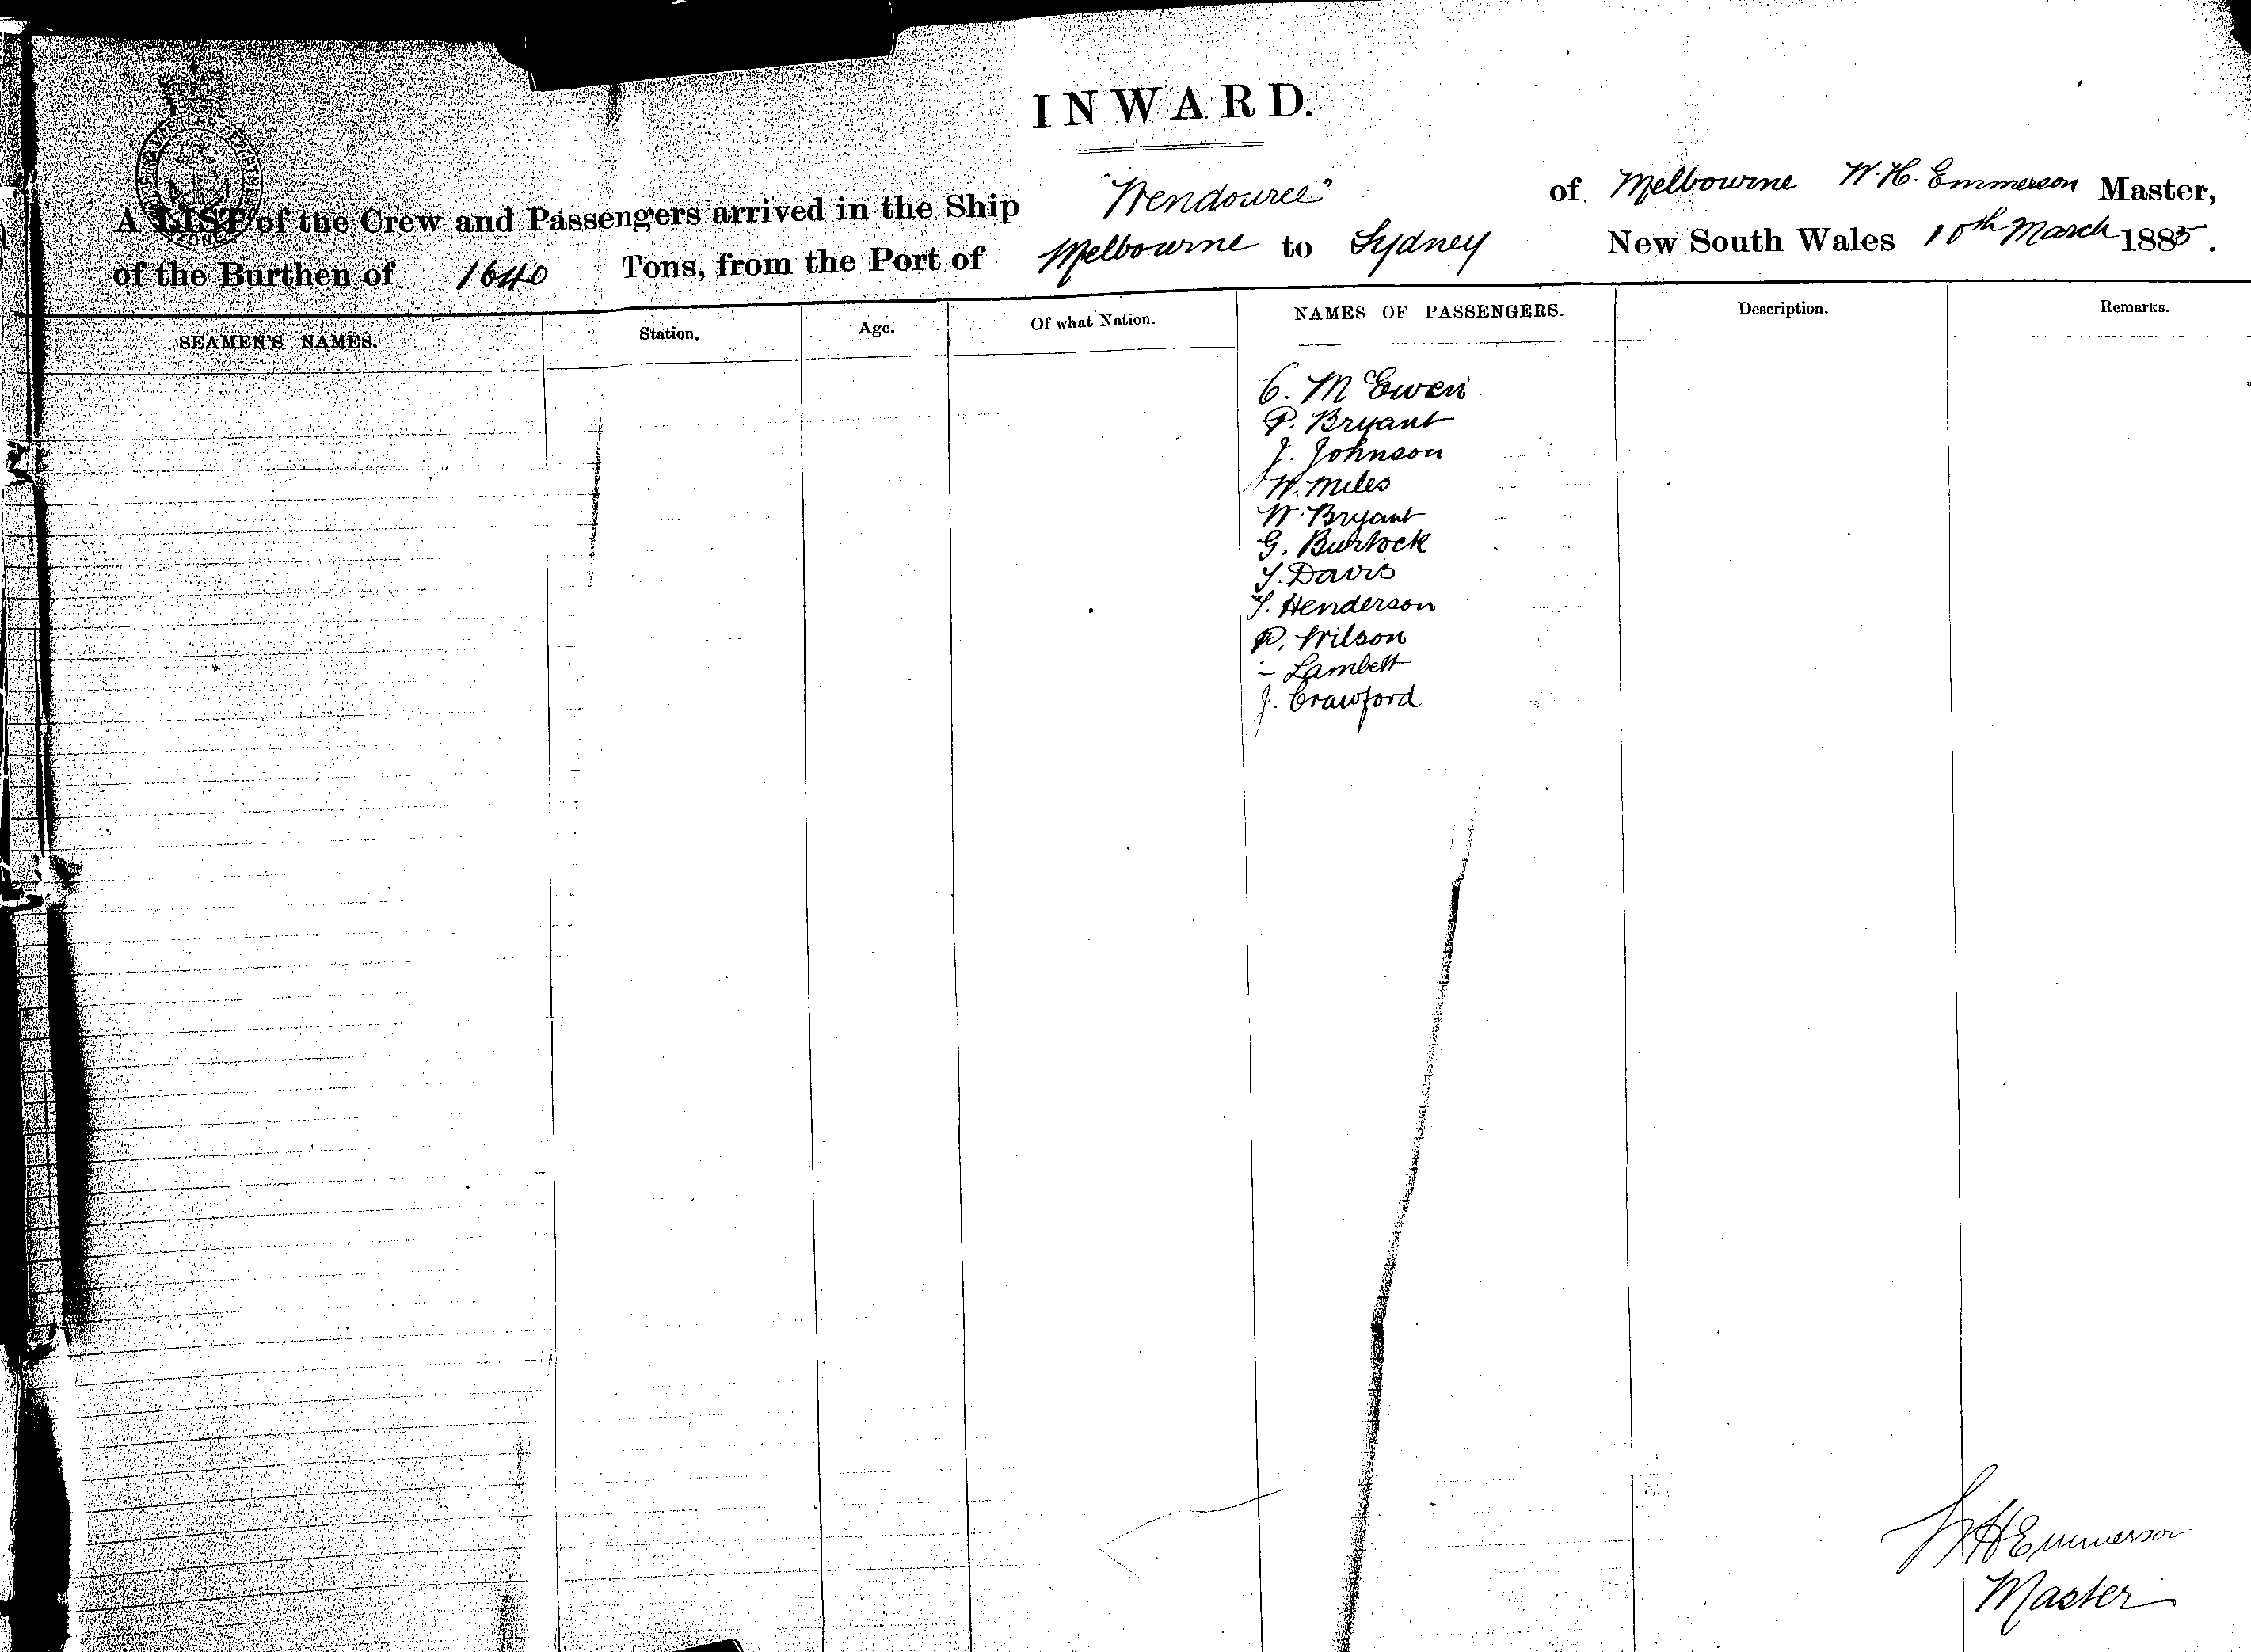 INWARD.
A LIST of the Crew and Passengers arrived in the Ship "Wendouree" of Melbourne W. H. Emmerson Master,
of the Burthen of 1640 Tons, from the Port of Melbourne to Sydney New South Wales 10th March 1885.
SEAMEN'S NAMES. Station. Age. Of what Nation. NAMES OF PASSENGERS. Description. Remarks.
C. McEwen
P. Bryant
J. Johnson
W. Miles
W. Bryant
G. Burlock
Davis
Henderson
R. Wilson
- Lambett
J. Crawford
W H Emmerson
Master